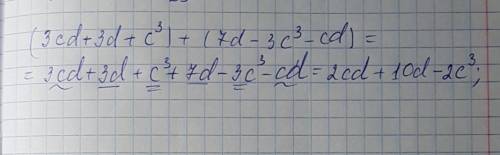 (3cd+3d+c³)+(7d-3c³-cd)=
=3cd+3d+c³+7d-3c³-cd=2cd+10d-2c³;